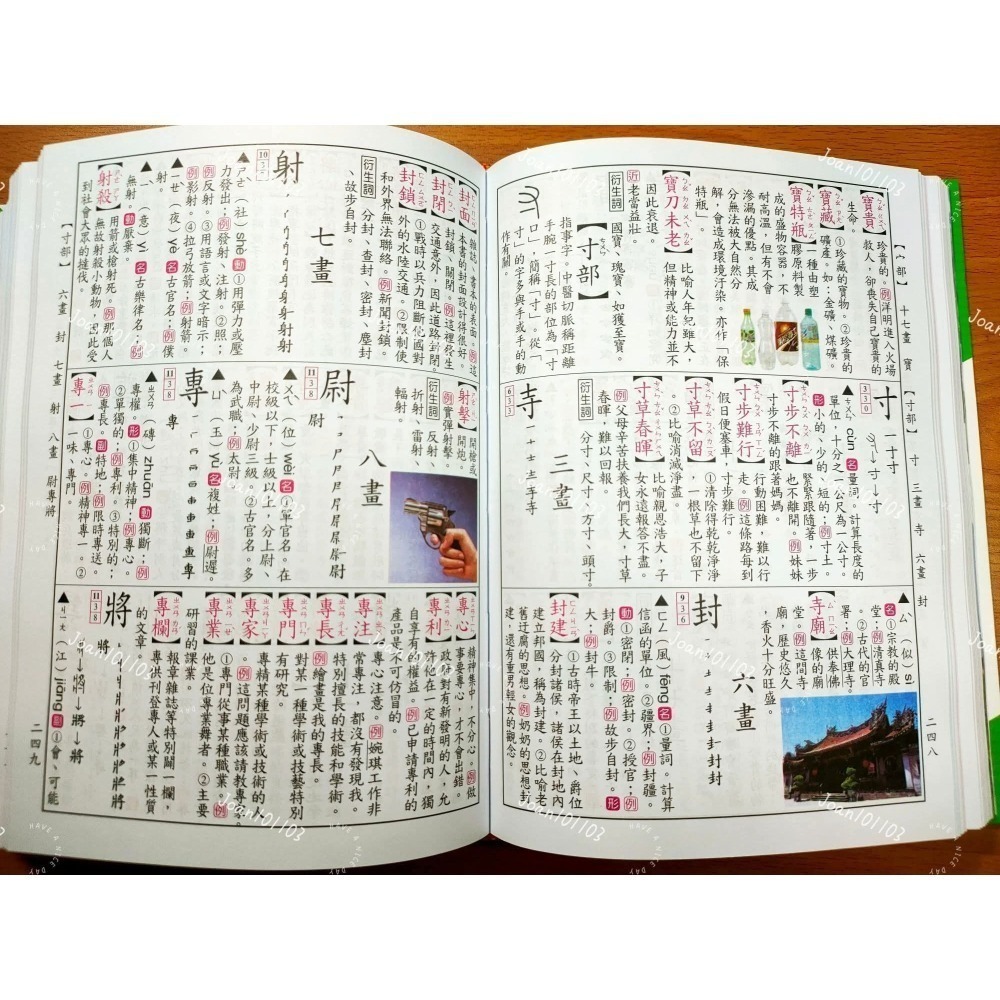 【宀部】 十七畫 寶
【寶貴】
珍貴的。例洋明進入火場
救人，卻喪失自己寶貴的
生命。
【寶藏】
①珍藏的寶物。②珍貴的
礦產。如：金礦、煤礦。
【寶特瓶】
一種由塑
膠原料製
成的盛物容器，不
耐高溫，但有不會
滲漏的優點。其成
分無法被大自然分
解，會造成環境汙染。亦作「保
特瓶」。
【寶刀未老】
比喻人年紀雖大，
但精神或能力並不
因此衰退。
近老當益壯
衍生詞 國寶、瑰寶、如獲至寶。
【寸部】
指事字。中醫切脈稱距離
手腕一寸長的部位為「寸
口」，簡稱「寸」。從「
寸」的字多與手或手的動
作有關。
【寸部】 寸 三畫 寺 六畫 封
寸 一十寸
3畫0
▲ cùn 名量詞。計算長度的
單位，十分之一公尺為一公寸。
形小的、少的、短的；例寸土。
【寸步不離】
緊緊跟隨著，一步
也不離開。例妹妹
寸步不離的跟著媽媽。
【寸步難行】
行動困難，難以行
走。例這條路每到
假日便塞車，寸步難行。
【寸草不留】
①清除得乾乾淨淨
，一根草也不留下
。②比喻消滅淨盡。
【寸草春暉】
比喻親恩浩大，子
女永遠報答不盡。
例父母辛苦扶養我們長大，寸草
春暉，難以回報。
衍生詞 分寸、尺寸、方寸、頭寸。
三畫
寺 一十土寺寺
▲ㄙˋ（似）sì
名①宗教的殿
堂；例清真寺
。②古代的官
署；例大理寺。
【寺廟】
供奉神佛
像的廟
堂。例這間寺
廟，歷史悠久
，香火十分旺盛。
六畫
封
▲ㄈㄥ（風）fēng 名①量詞。計算
信函的單位。②疆界；例封疆。
動①密閉；例密封。②授官；例
封爵。③限制；例故步自封。形
大；例封牛。
【封建】
①古時帝王以土地、爵位
分封諸侯，諸侯在封地內
建立邦國，稱為封建。②比喻老
舊迂腐的思想。例奶奶的思想封
建，還有重男輕女的觀念。
二四八
【寸部】 六畫 封 七畫 射 八畫 尉專將
【封面】
雜誌、書本的表面。例這
本書的封面設計得很好。
【封閉】
封鎖、關閉。例這裡發生
交通意外，因此道路封閉。
【封鎖】
①戰時以兵力阻斷他國對
外的水陸交通。②限制使
和外界無法聯絡。例新聞封鎖。
衍生詞 分封、查封、密封、塵封
、故步自封。
七畫
射
▲ㄕㄜˋ（社）shè 動①用彈力或壓
力發出；例發射、注射。②照；
例反射。③用語言或文字暗示；
例影射。④拉弓放箭；例射箭。
▲ㄧㄝˋ（夜）yè 名古官名；例僕
射。
▲ㄧˋ（意）yì 名古樂律名；例
無射。動厭棄。
【射殺】
用箭或槍射死。例那個人
無故射殺小動物，因此受
到社會大眾的撻伐。
【射擊】
開槍或
開炮。
例實彈射擊。
衍生詞 反射、
投射、雷射、
輻射。
八畫
尉
▲ㄨㄟˋ（位）wèi 名①軍官名。在
校級以下，士級以上，分上尉、
中尉、少尉三級。②古官名。多
為武職；例太尉。
▲ㄩˋ（玉）yù 名複姓；例尉遲。
專
▲ㄓㄨㄢ（磚）zhuān 動獨斷；例
專權。形①集中精神；例專心。
②單獨的；例專利。③特別的；
例專長。副特地；例限時專送。
【專一】
①專心。例精神專一。②
一味、專門。
【專心】
精神集中，不分心。例做
事要專心，才不會出錯。
【專利】
政府對有新發明的人，允
許他在一定的時間內，獨
自享有的權益。例已申請專利的
產品是不可仿冒的。
【專注】
專心注意。例婉琪工作非
常專注，都沒有發現我。
【專長】
特別擅長的技能和學術。
例繪畫是我的專長。
【專門】
對某一種學術或技藝特別
有研究。
【專家】
專精某種學術或技術的人
。例這問題應該請教專家。
【專業】
①專門從事某種職業。例
他是位專業舞者。②主要
研習的課業。
【專欄】
報章雜誌等特別闢一欄，
專供刊登專人或某一性質
的文章。
將
▲ㄐㄧㄤ（江）jiāng 副①會、可能
二四九
Joan101103
HAVE A NICE DAY